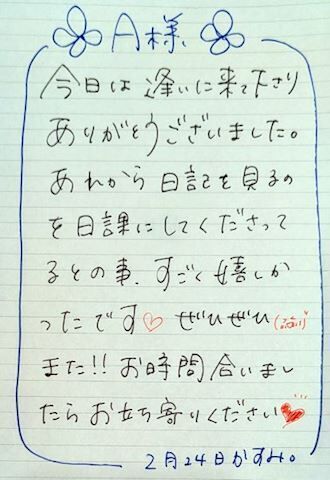 A様
今日は逢いに来て下さり
ありがとうございました。
あれから日記を見るの
を日課にしてくださって
るとの事、すごく嬉しか
ったです♡ ぜひぜひ
また!! お時間合いまし
たらお立ち寄りください♥
2月24日かすみ。